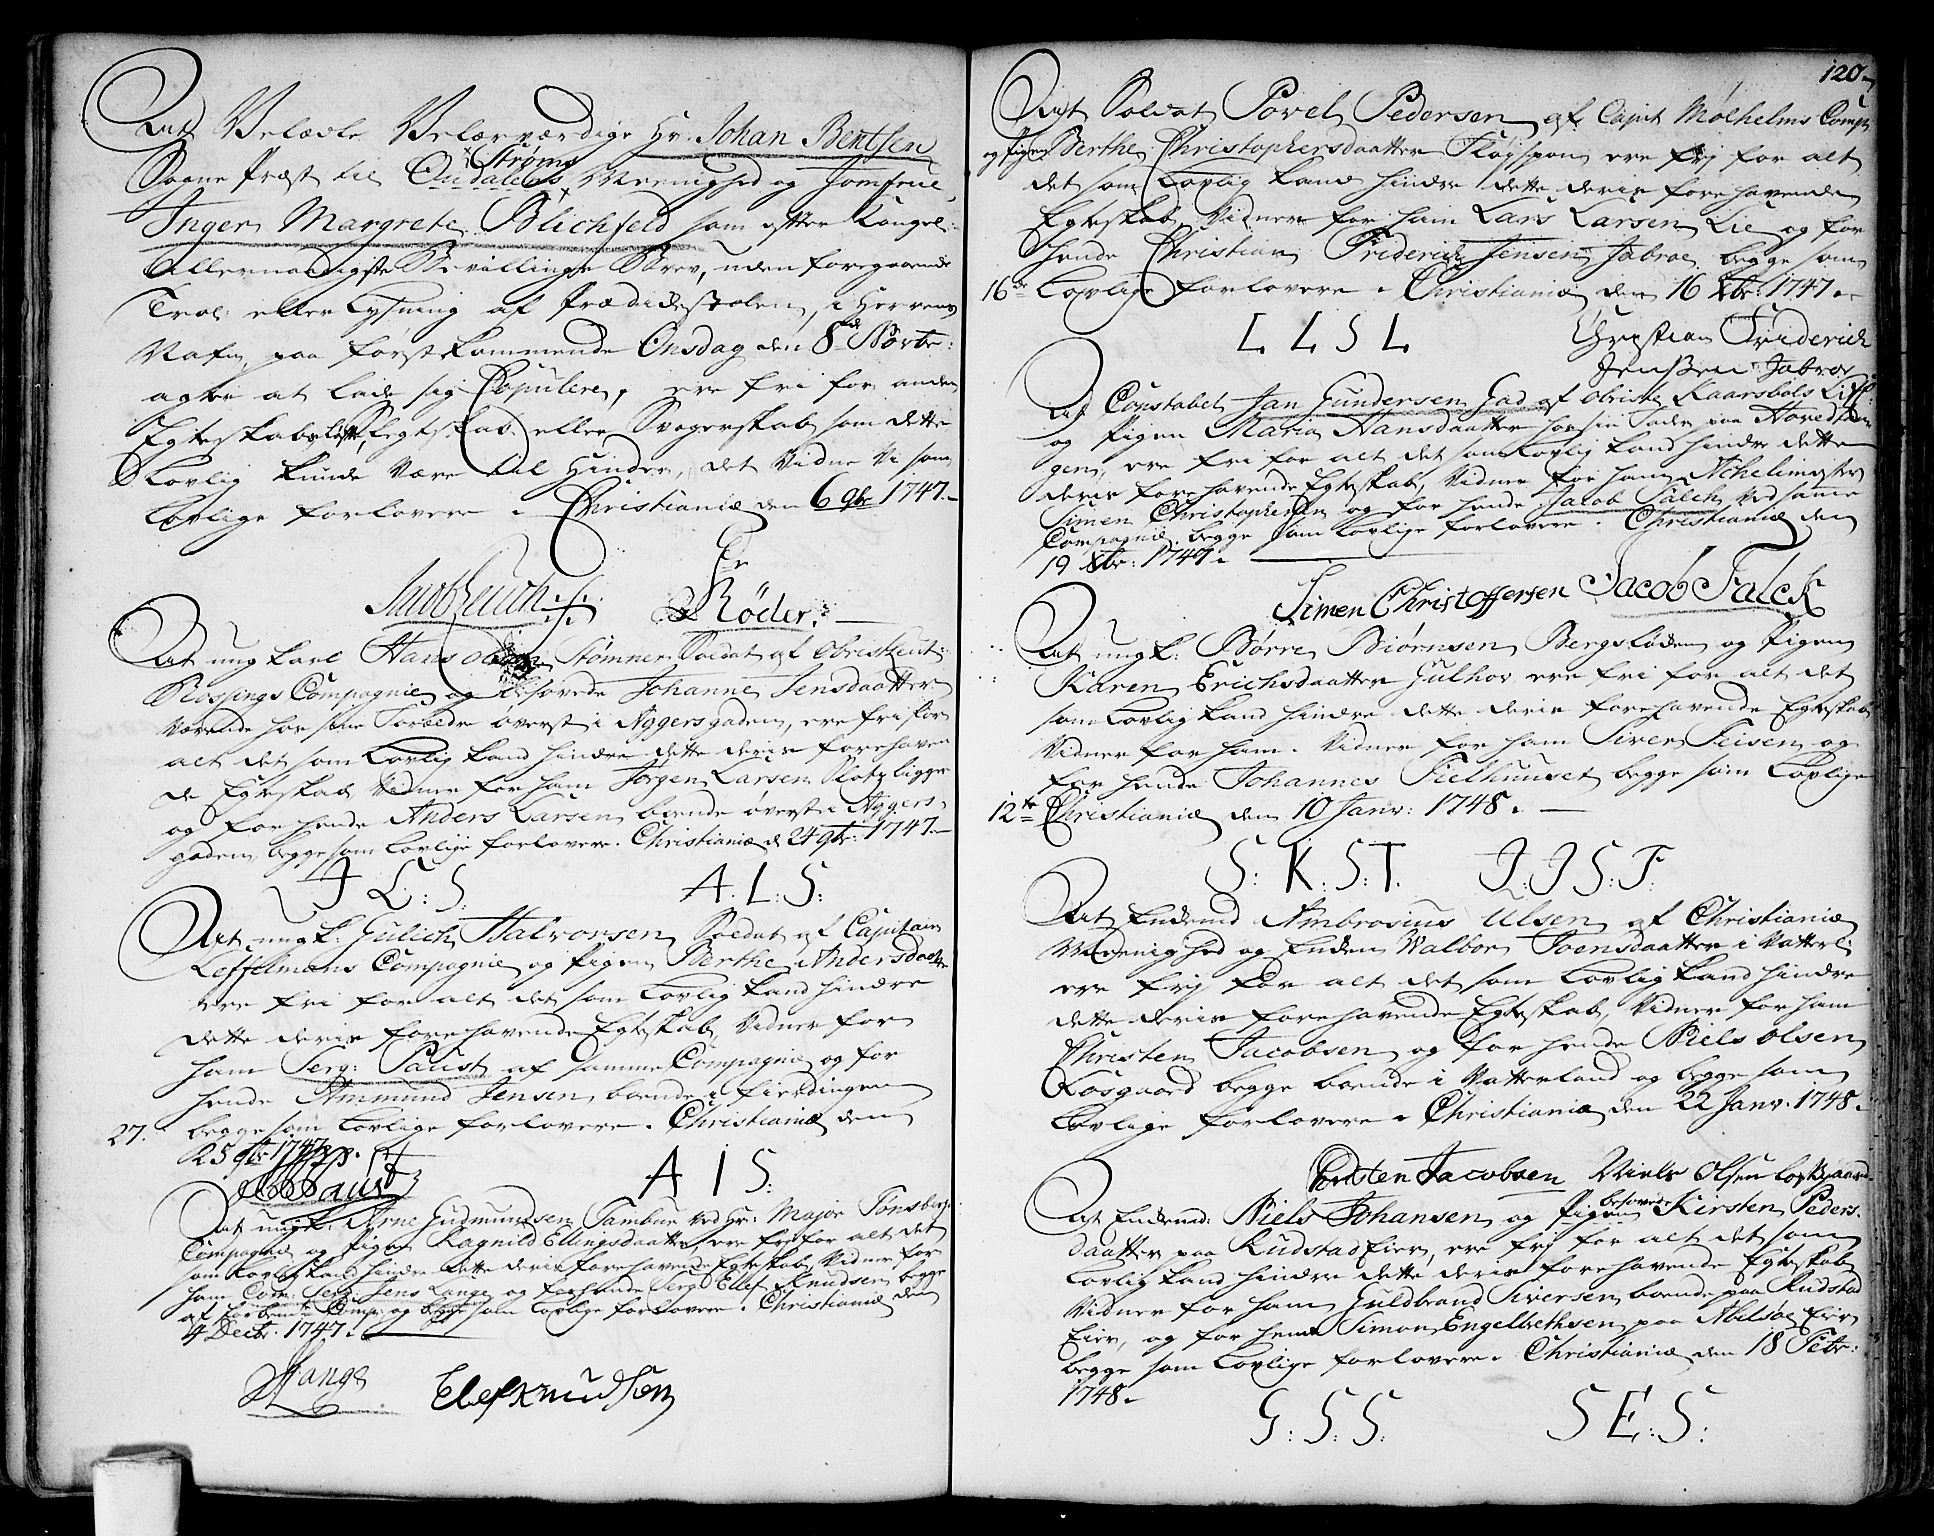 At Velædle Velærværdige Hr. Johan Bentsen
Sogne Præst til Oudalens Strøms Meenighed og Jomfrue
Inger Margrete Blichfeld som efter Kongel:
Allernaadigste Bevillings Brev, uden foregaaende
Trol: eller Lysning af Prædickestolen, i Herrens
Nafn, paa førstkommende Onsdag den 8de Novbr:
agter at lade sig Copulere, ere fri for anden
Egteskabs løfte, Segtskab eller Svogerskab som dette
Lovlig kunde være til Hinder, det Vidne Vi som
Lovlige forlovere. Christianiæ den 6 9br 1747.
Røder.
At ungkarl Hans Olsen Stømner Soldat af Obristleut:
Røssings Compagnie og b:søvede Johanne Jensdaatter
værende hos sine Forældre øverst i Aggersgaden, ere fri for
alt det som Lovlig kand hindre dette deris forehaven
de Egteskab Vidner for ham Jørgen Larsen Slotz ligge
og for hende Anders Larsen boende øverst i Aggers
gaden, begge som Lovlige forlovere. Christianiæ d 24 9br: 1747.
J L: S. A. L: S:
At ungk: Gulich Halvorsen Soldat af Capitain
Leffelmans Compagnie og Pigen Berthe Andersdaatter
ere fri for alt det som Lovlig kand hindre
dette deris forehavende Egteskab, Vidner for
ham Serg: Paust af samme Compagnie og for
hende Ammund Jensen boende i Fierdingen
27. begge som Lovlige forlovere. Christianiæ den
25 9br 1747.
Paust A I S:
At ungk: Arne Gudmundsen Tambur ved Hr: Major Tønsbergs
Compagnie og Pigen Ragnild Ellingsdaatter, ere fri for alt det
som Lovlig kand hindre dette deris forehavende Egteskab, Vidner for
ham Serg: Jens Lange og for hende Serg: Ellef Knudsen begge
af Comp: og begge som Lovlige forlovere. Christianiæ den
4 Decbr: 1747.
Lange Elef Knudsen
120.
At Soldat Povel Pedersen af Capit Mølhelms Comp
og Pigen Berthe Christophersdaatter Fløgspon ere frj for alt
det som Lovlig kand hindre dette deris forehavende
Egteskab, Vidner for ham Lars Larsen Lie og for
hende Christian Friderich Jensen Jabroe begge som
16de Lovlige forlovere. Christianiæ den 16 Xbr: 1747.
L L S L Christian Friderich
Jenssen Jabroe
At Constabel Jan Gundersen Gad af Obriste Kaarsbøls Liff:
og Pigen Maria Hansdaatter hos sin Fader paa Hovedtan
gen, ere fri for alt det som Lovlig kand hindre dette
deris forehavende Egteskab, Vidner for ham
Simen Christophersen og for hende Jacob Falch ved samme
Compagnie begge som Lovlige forlovere. Christianiæ den
19 Xbr: 1747.
Simen Christoffersen Jacob Falck
At ungk: Børre Biørnsen Bergsløden og Pigen
Karen Erichsdaatter Gulhov ere fri for alt det
som Lovlig kand hindre dette deris forehavende Egteskab
Vidner for ham. Vidner for ham Siver Teisen og
for hende Johannes Fielhuuset begge som Lovlige
12te Christianiæ den 10 Janv: 1748.
S: K: S: T. J: J S: F:
At Enkemd Ambrosius Ulsen af Christianiæ
Meenighed og Enken Walbor Joensdaatter i Vatterl:
ere frj for alt det som Lovlig kand hindre
dette deris forehavende Egteskab, Vidner for ham
Christen Jacobsen og for hende Niels Olsen
Losgaard begge boende i Vatterland og begge som
Lovlige forlovere. Christianiæ den 22 Janv. 1748.
Kresten Jacobsen Niels Olsen Losgaard
At Enkemd: Niels Johansen og Pigen besovede Kirsten Peders
daatter paa Rudstad Eier, ere frj for alt det som
Lovlig kand hindre dette deris forehavende Egteskab
Vidner for ham Guldbrand Siversen boende paa Rudstad
Eier, og for hende Simon Engelbrethsen paa Abelsøe Eier
begge som Lovlige forlovere. Christianiæ den 18 Febr:
1748.
G: S: S: S E: S: